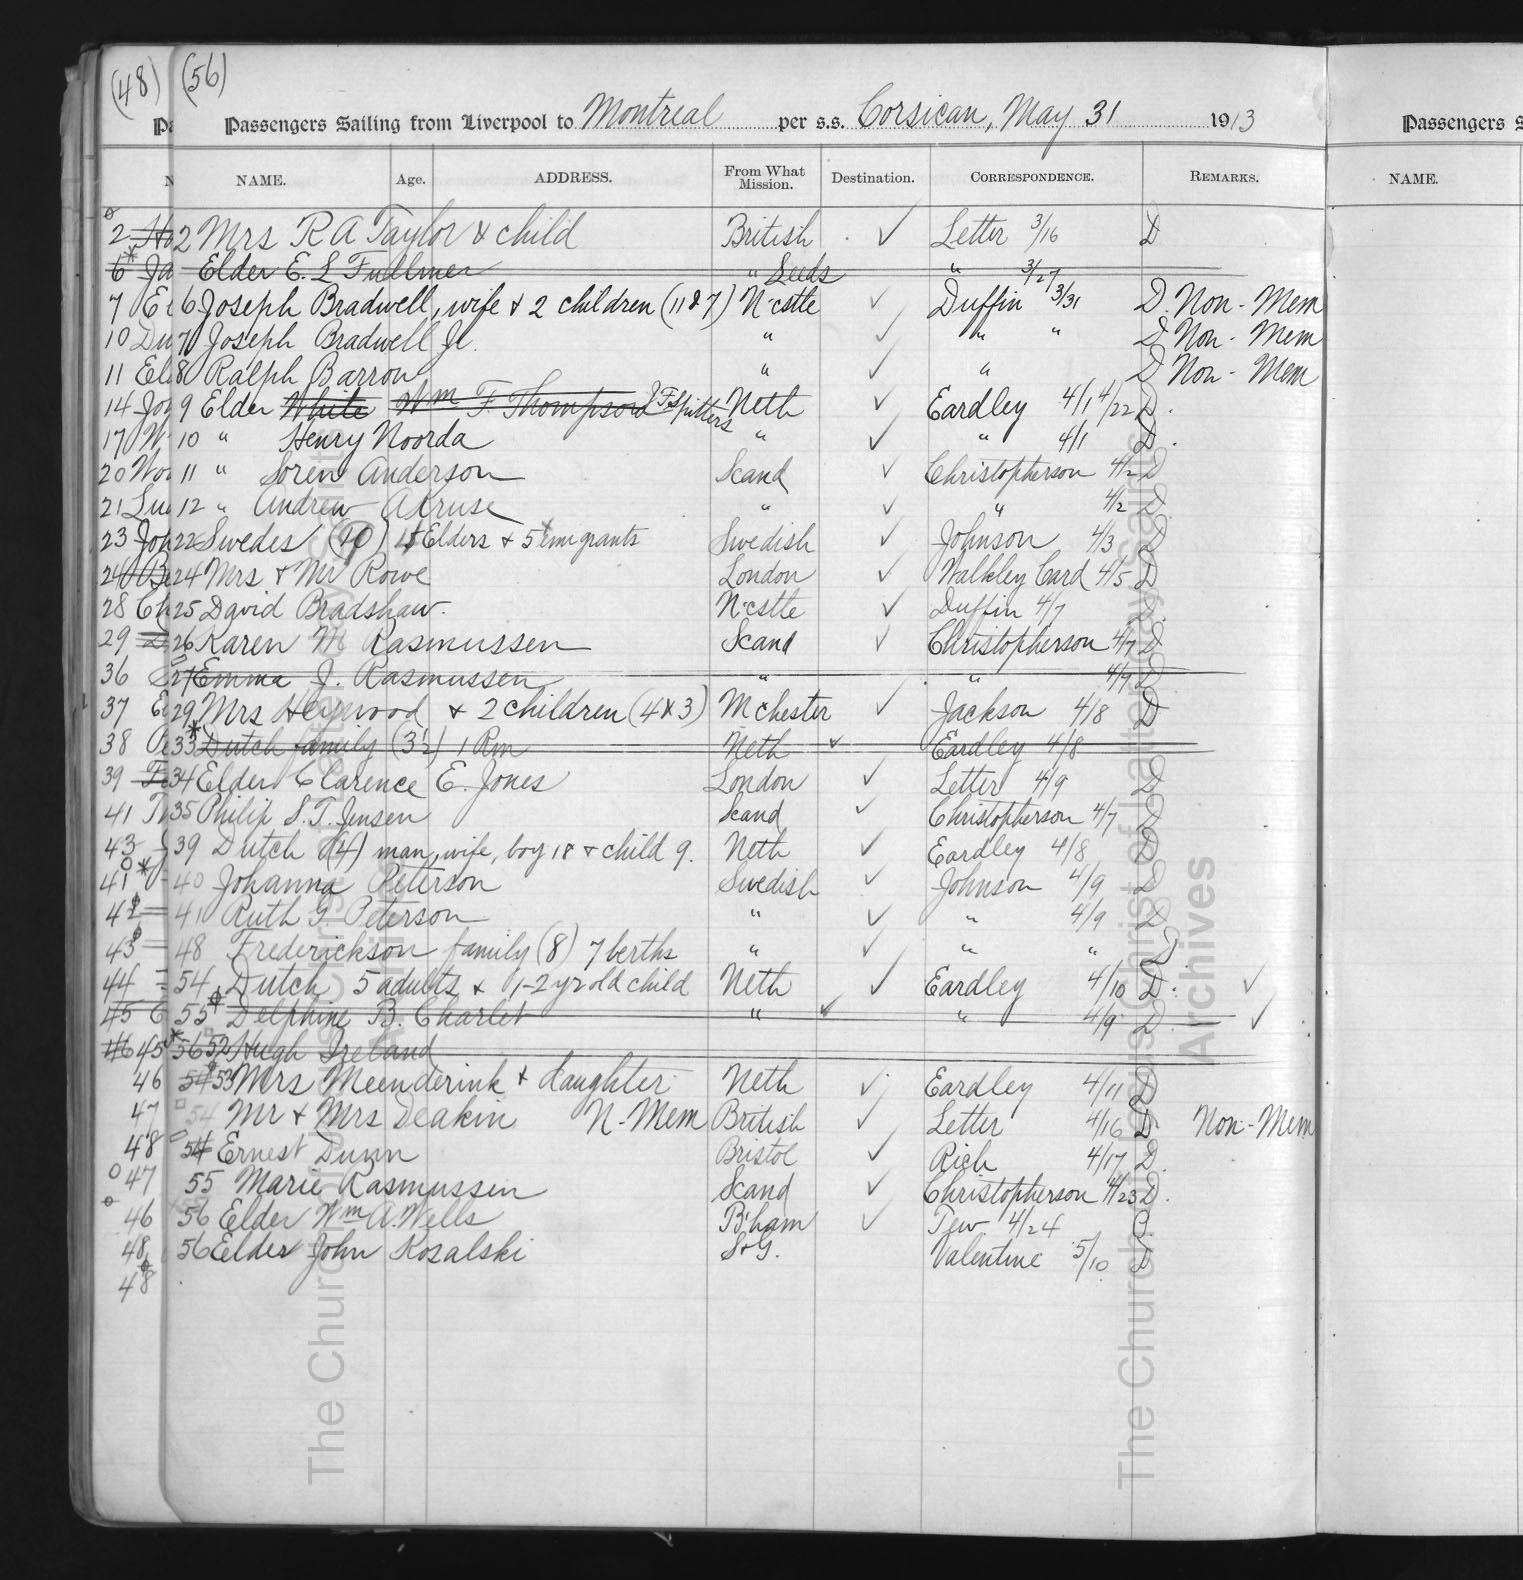 (48) (56)
Passengers Sailing from Liverpool to Montreal per s.s. Corsican, May 31 1913
Passengers S
NAME. Age. ADDRESS. From What Mission. Destination. CORRESPONDENCE. REMARKS.
NAME.
2 2 Mrs R A Taylor & child British ✓ Letter 3/16 D
6 * Ja Elder E. L Fullmer " Leeds " 3/27
7 E 6 Joseph Bradwell, wife & 2 children (11 & 7) N'cstle ✓ Duffin 3/31 D. Non-Mem
10 Du 7 Joseph Bradwell Jr. " ✓ " " D Non-Mem
11 El 8 Ralph Barron " ✓ " D Non-Mem
14 Jo 9 Elder White Wm F. Thompson Neth ✓ Eardley 4/1 4/22 D.
17 W 10 " Henry Noorda " ✓ " 4/1 D.
20 Wo 11 " Soren Anderson Scand ✓ Christopherson 4/2 D
21 Lu 12 " Andrew Akruse " ✓ " 4/2 D
23 Joh 22 Swedes (10) 15 Elders & 5 emigrants Swedish ✓ Johnson 4/3 D
24 Be 24 Mrs & Mr Rowe London ✓ Walkley Card 4/5 D
28 Ch 25 David Bradshaw. N'cstle ✓ Duffin 4/7 D
29 26 Karen M Rasmussen Scand ✓ Christopherson 4/7 D
36 27 Emma J. Rasmussen " " 4/7 D
37 E 29 Mrs Heywood & 2 children (4 & 3) Mchester ✓ Jackson 4/8 D
38 33 * Dutch family (3½) 1 Rm Neth ✓ Eardley 4/8
39 34 Elder Clarence E. Jones London ✓ Letter 4/9 D
41 35 Philip S. T. Jensen Scand ✓ Christopherson 4/7 D
43 39 Dutch (4) man, wife, boy 18 & child 9. Neth ✓ Eardley 4/8 D
41 * 40 Johanna Peterson Swedish ✓ Johnson 4/9 D
42 41 Ruth G. Peterson " ✓ " 4/9 D
43 48 Frederickson family (8) 7 berths " ✓ " " D
44 54 Dutch 5 adults & 1-2 yr old child Neth ✓ Eardley 4/10 D. ✓
45 55 Delphine B. Charlet " ✓ " 4/9 D ✓
46 45 * 56 52 Hugh Ireland
46 54 53 Mrs Meenderink & daughter Neth ✓ Eardley 4/11 D
47 54 Mr & Mrs Deakin N-Mem British ✓ Letter 4/16 D Non-Mem
48 54 Ernest Dunn Bristol ✓ Rich 4/17 D.
47 55 Marie Rasmussen Scand ✓ Christopherson 4/23 D.
46 56 Elder Wm A. Wells B'ham ✓ Tew 4/24 D.
48 56 Elder John Kosalski S & G. Valentine 5/10 D
48
The Church of Jesus Christ of Latter-day Saints
Archives